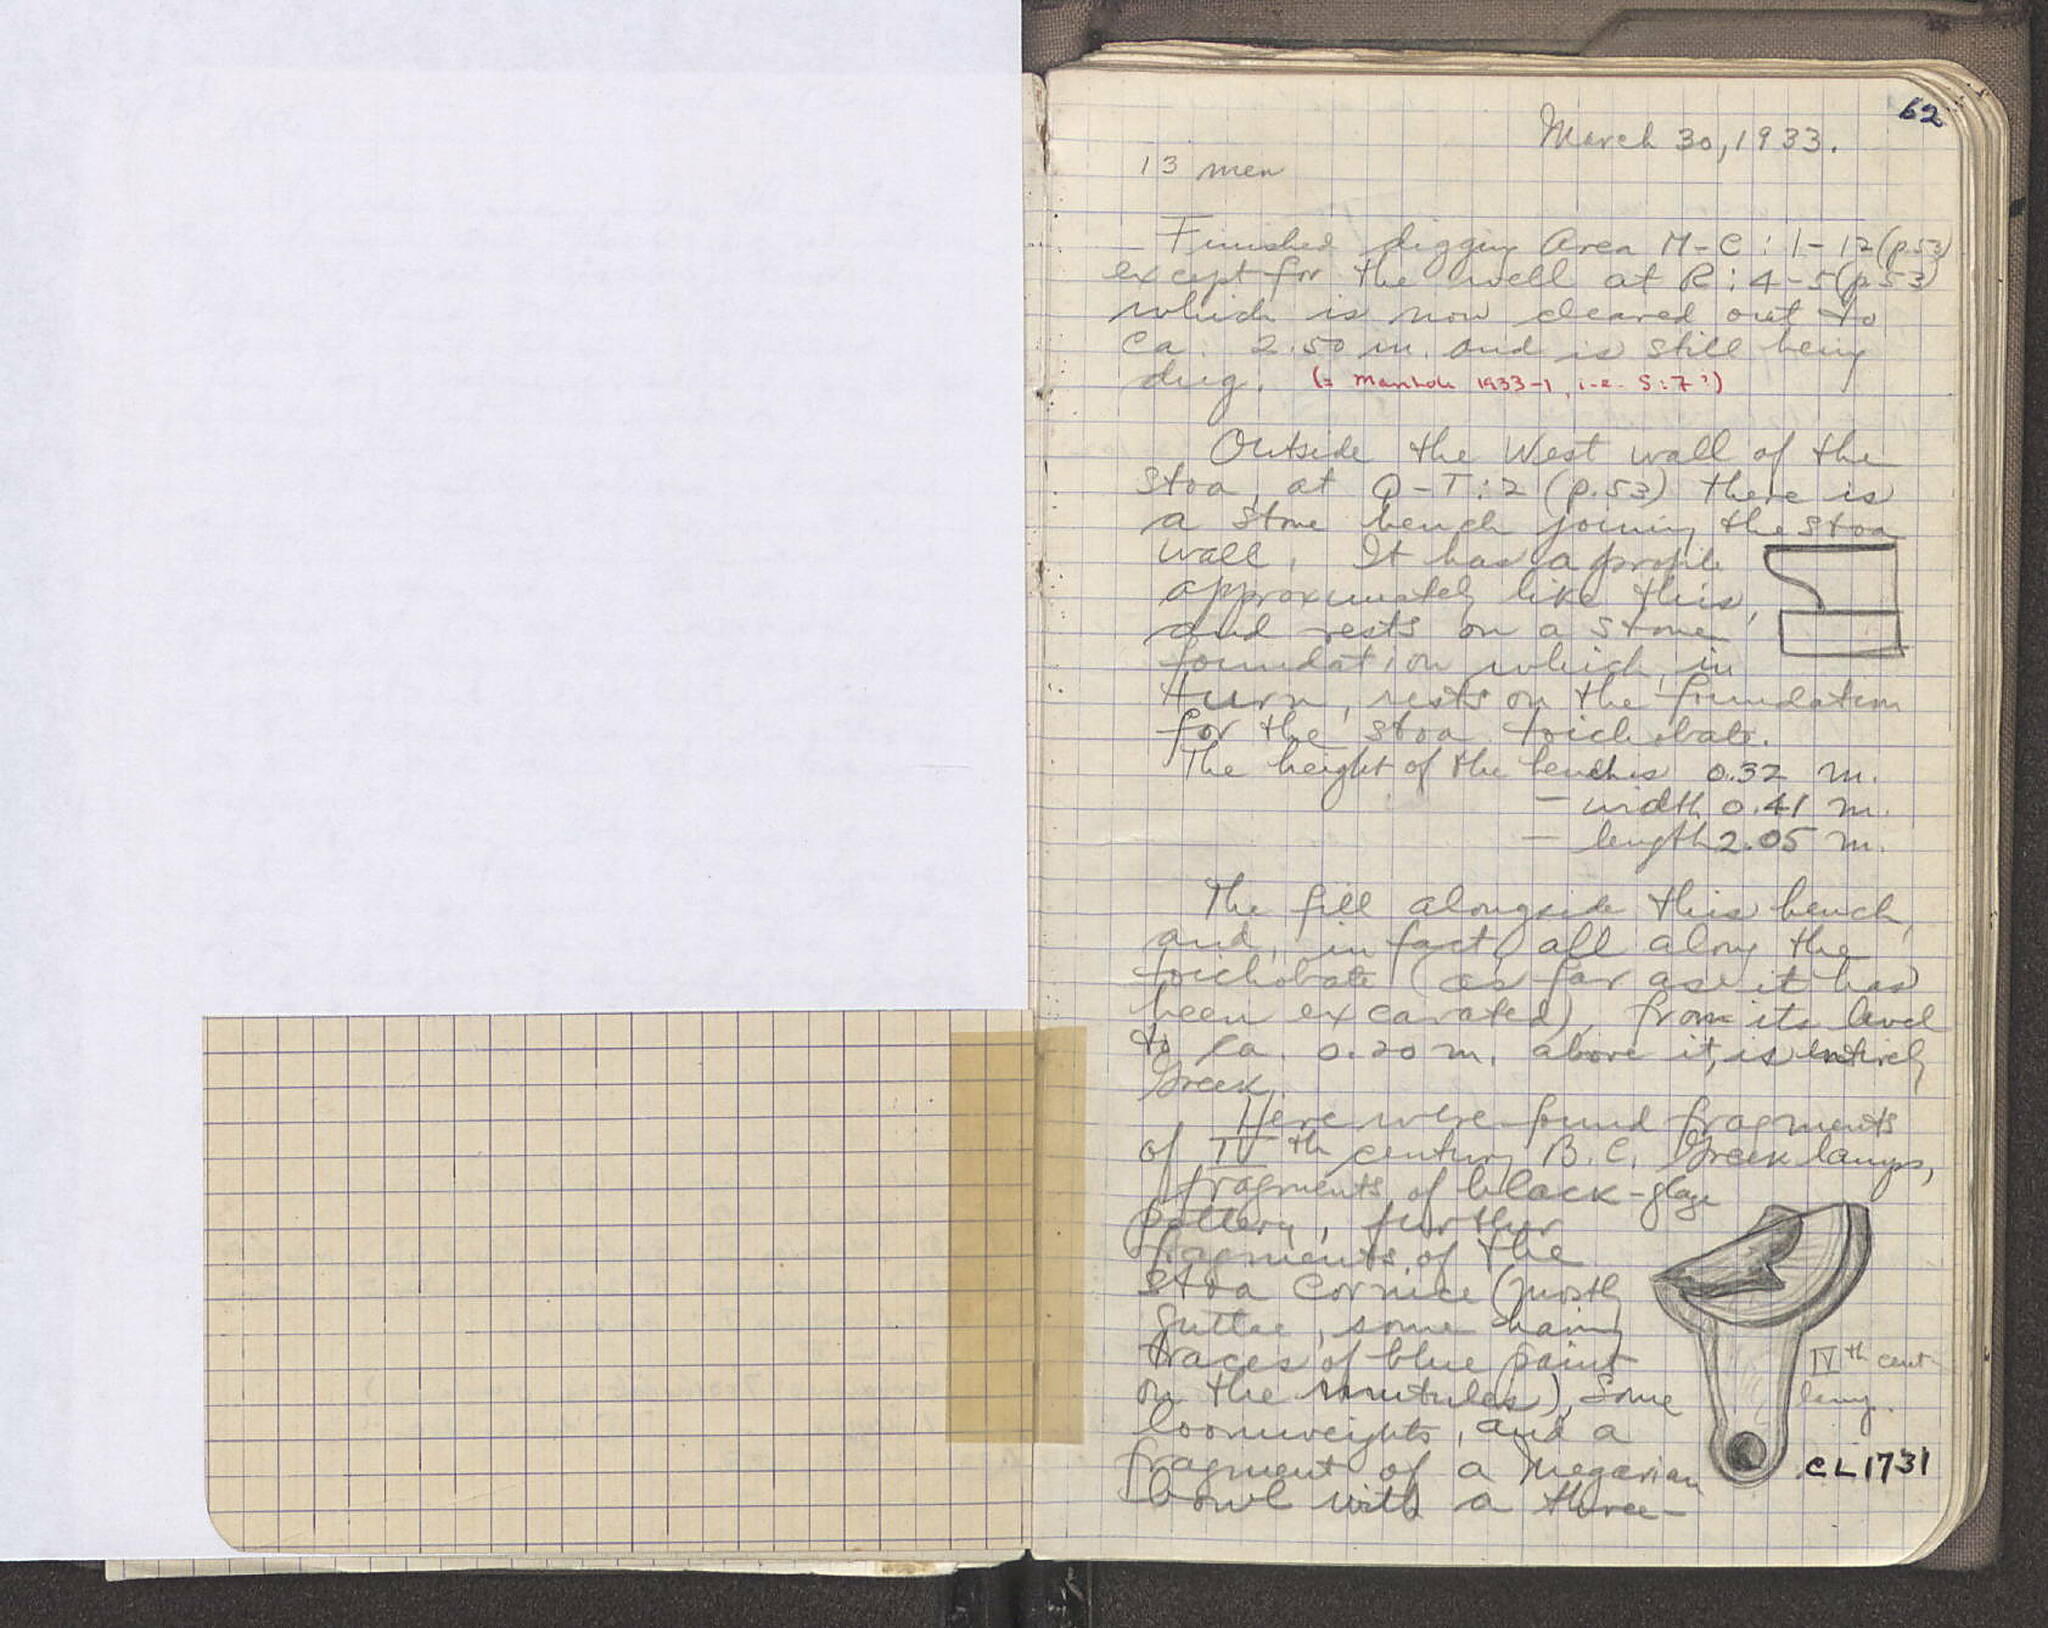 62
March 30, 1933.
13 men
Finished digging Area M-C: 1-12 (p.53)
except for the well at R: 4-5 (p.53)
which is now cleared out to
ca. 2.50 m. and is still being
dug. (= Manhole 1933-1, i.e. S:7?)
Outside the West wall of the
stoa, at Q-T:2 (p.53) there is
a stone bench joining the stoa
wall. It has a profile
approximately like this,
and rests on a stone
foundation which, in
turn, rests on the foundation
for the stoa toichobate.
The height of the bench is 0.32 m.
— width 0.41 m.
— length 2.05 m.
The fill alongside this bench,
and, in fact, all along the
toichobate (as far as it has
been excavated), from its level
to ca. 0.20 m. above it, is entirely
Greek.
Here were found fragments
of IVth century B.C. Greek lamps,
fragments of black-glaze
pottery, further
fragments of the
stoa cornice (mostly
guttae, some having
traces of blue paint
on the mutules), some
loomweights, and a
fragment of a Megarian
bowl with a three-
IVth cent.
lamp.
CL 1731